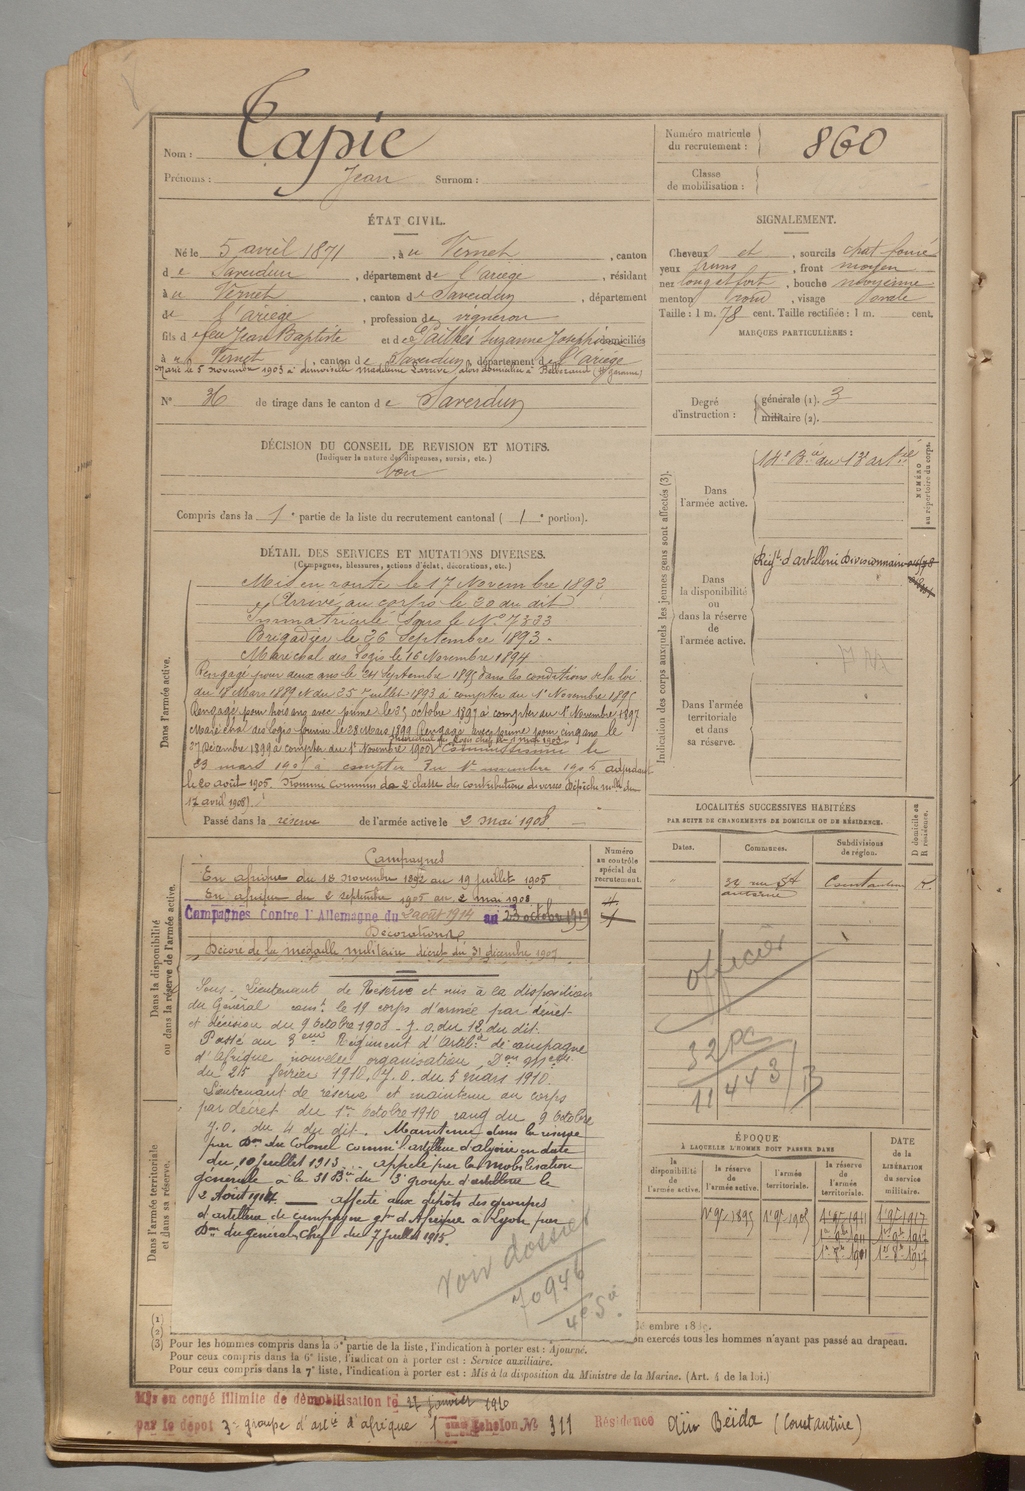 Nom : Tapie
Prénoms : Jean Surnom :
Numéro matricule du recrutement : 860
Classe de mobilisation :
ÉTAT CIVIL.
Né le 5 avril 1871, à u Vernet, canton
de Saverdun, département de l'ariège, résidant
à u Vernet, canton de Saverdun, département
de l'ariège, profession de vigneron
fils de feu Jean Baptiste et de Suzanne Joséphine domiciliés
à u Vernet, canton de Saverdun, département de l'ariège
Marié le 5 novembre 1903 à demoiselle Madeleine Larrive alors domiciliée à
N° 36 de tirage dans le canton de Saverdun
SIGNALEMENT.
Cheveux et, sourcils chat. foncé
yeux bruns, front moyen
nez long et fort, bouche moyenne
menton rond, visage ovale
Taille : 1 m. 78 cent. Taille rectifiée : 1 m. cent.
MARQUES PARTICULIÈRES :
Degré d'instruction : générale (1). 3
militaire (2).
DÉCISION DU CONSEIL DE REVISION ET MOTIFS.
(Indiquer la nature des dispenses, sursis, etc.)
bon
Compris dans la 1e partie de la liste du recrutement cantonal (1e portion).
Indication des corps auxquels les jeunes gens sont affectés (3).
NUMÉRO au répertoire du corps.
Dans l'armée active.
14e Bie au 13e artie
Dans la disponibilité ou dans la réserve de l'armée active.
Régt d'artillerie divisionnaire
Dans l'armée territoriale et dans sa réserve.
DÉTAIL DES SERVICES ET MUTATIONS DIVERSES.
(Campagnes, blessures, actions d'éclat, décorations, etc.)
Dans l'armée active.
Mis en route le 17 Novembre 1892
Arrivé au corps le 20 du dit
Immatriculé sous le N° 7333
Brigadier le 26 Septembre 1893.
Maréchal des Logis le 16 Novembre 1894
Rengagé pour deux ans le 24 Septembre 1895 dans les conditions de la loi
du 18 Mars 1889 & du 25 Juillet 1893 à compter du 1er Novembre 1895
Rengagé pour trois ans avec prime le 25 octobre 1897 à compter du 1er Novembre 1897
Maréchal des Logis fourrier le 28 Mars 1899 Rengagé avec prime pour cinq ans le
27 Décembre 1899 à compter du 1er Novembre 1900 Commissionné le
23 mars 1905 à compter du 1er novembre 1905 adjudant
le 20 août 1905. Nommé Commis de 2e classe des contributions diverses Dépêche mlle du
17 avril 1908).
Passé dans la réserve de l'armée active le 2 mai 1908.
Numéro au contrôle spécial du recrutement.
Dans la disponibilité ou dans la réserve de l'armée active.
Campagnes
En afrique du 18 novembre 1892 au 19 juillet 1905
En afrique du 2 septembre 1905 au 2 mai 1908
Campagnes Contre l'Allemagne du 2 août 1914 au 23 octobre 1919
Décorations
Décoré de la médaille militaire décret du 31 décembre 1907
Sous-Lieutenant de Réserve et mis à la disposition
du Général comt le 19 corps d'armée par décret
et décision du 9 octobre 1908 - J.O. du 12 du dit.
Passé au 3eme Régiment d'Artie de campagne
d'Afrique, nouvelle organisation, Don Mlle
du 25 février 1910. J.O. du 5 mars 1910.
Lieutenant de réserve et maintenu au corps
par décret du 1er octobre 1910 rang du 9 Octobre
J.O. du 4 du dit. Maintenu dans la réserve
par Don du Colonel commt l'artillerie d'algérie en date
du 10 juillet 1913. appelé par la mobilisation
générale à la 31 Bie du 3 groupe d'artillerie le
2 Août 1914. affecté aux dépôts des groupes
d'artillerie de campagne d'Afrique à Lyon par
Don du général Chef du 7 juillet 1915.
voir dossier
70946
Dans l'armée territoriale et dans sa réserve.
LOCALITÉS SUCCESSIVES HABITÉES
PAR SUITE DE CHANGEMENTS DE DOMICILE OU DE RÉSIDENCE.
Dates. Communes. Subdivisions de région. D domicile ou R résidence.
32 rue St antoine Constantine R.
officier
32 PC
11443/13
ÉPOQUE
À LAQUELLE L'HOMME DOIT PASSER DANS
DATE de la LIBÉRATION du service militaire.
la disponibilité de l'armée active. la réserve de l'armée active. l'armée territoriale. la réserve de l'armée territoriale.
1er 9bre 1895 1er 9bre 1905 1er 9bre 1911 1er 9bre 1917
(1)
(2)
on exercés tous les hommes n'ayant pas passé au drapeau.
(3) Pour les hommes compris dans la 5e partie de la liste, l'indication à porter est : Ajourné.
Pour ceux compris dans la 6e liste, l'indication à porter est : Service auxiliaire.
Pour ceux compris dans la 7e liste, l'indication à porter est : Mis à la disposition du Ministre de la Marine. (Art. 4 de la loi.)
Mis en congé illimité de démobilisation le
par le dépôt 3e groupe d'artie d'afrique 1 échelon N° 311 Résidence Aïn Beïda (Constantine)